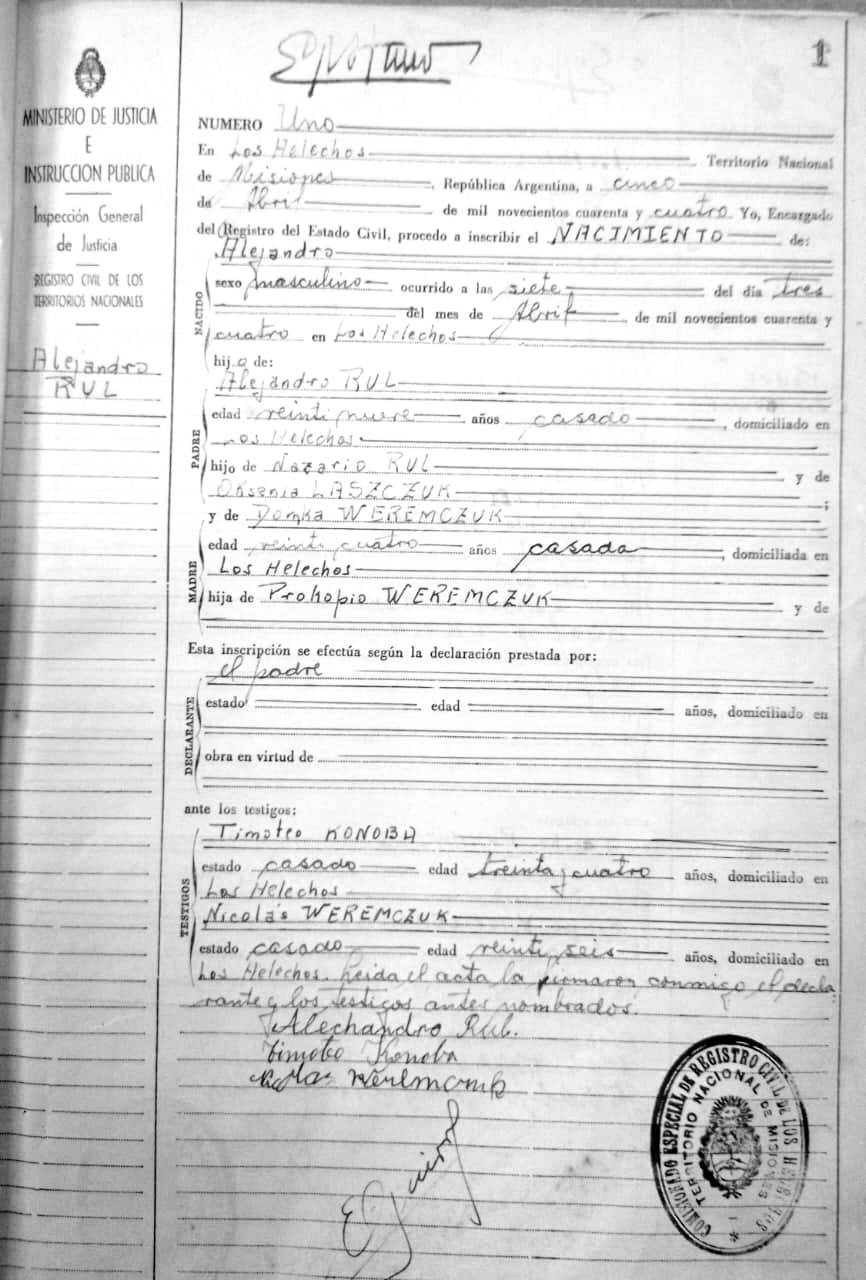 1
MINISTERIO DE JUSTICIA
E
INSTRUCCION PUBLICA
Inspección General
de Justicia
REGISTRO CIVIL DE LOS
TERRITORIOS NACIONALES
Alejandro
RUL
NUMERO Uno
En Los Helechos Territorio Nacional
de Misiones, República Argentina, a cinco
de Abril de mil novecientos cuarenta y cuatro. Yo, Encargado
del Registro del Estado Civil, procedo a inscribir el NACIMIENTO de:
Alejandro
NACIDO
sexo masculino ocurrido a las siete del día tres
del mes de Abril de mil novecientos cuarenta y
cuatro en Los Helechos
hijo de:
Alejandro RUL
PADRE
edad veinti nueve años casado, domiciliado en
Los Helechos
hijo de Nazario RUL y de
Oksenia LASZCZUK;
y de Domka WEREMCZUK
MADRE
edad veinti cuatro años casada, domiciliada en
Los Helechos
hija de Prokopio WEREMCZUK y de
Esta inscripción se efectúa según la declaración prestada por:
el padre
DECLARANTE
estado edad años, domiciliado en
obra en virtud de
ante los testigos:
TESTIGOS
Timoteo KONOBA
estado casado edad treinta y cuatro años, domiciliado en
Los Helechos
Nicolás WEREMCZUK
estado casado edad veinti seis años, domiciliado en
Los Helechos. Leida el acta la firmaron conmigo el decla
rante y los testigos antes nombrados.
Alechandro Rul.
Timoteo Konoba
COMISIONADO ESPECIAL DE REGISTRO CIVIL DE LOS HELECHOS
TERRITORIO NACIONAL DE MISIONES